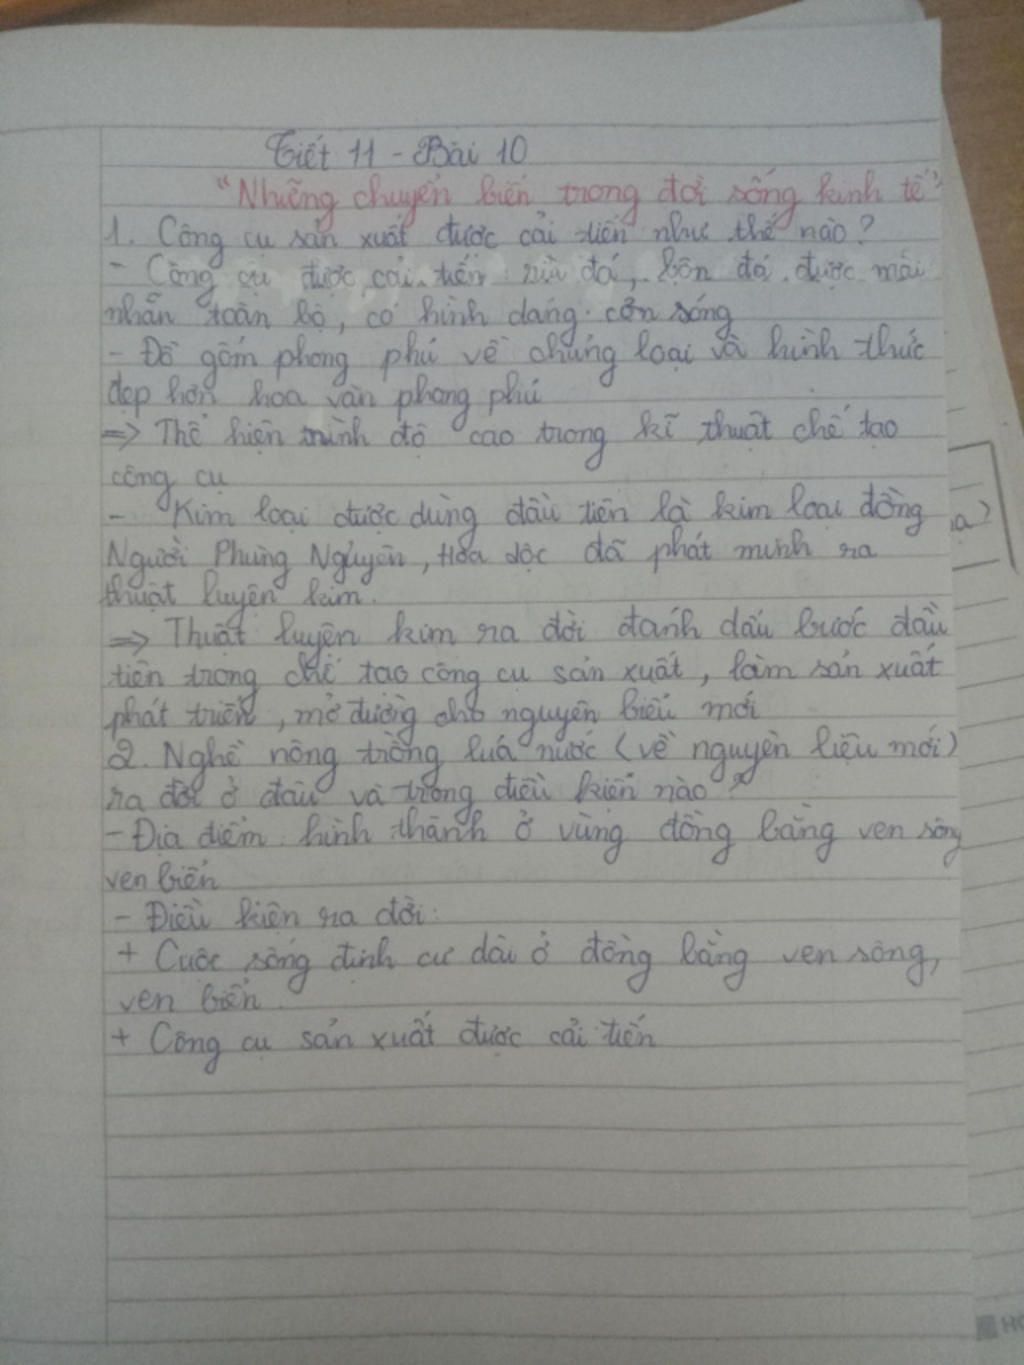 Tiết 11 - Bài 10
"Những chuyển biến trong đời sống kinh tế"
1. Công cụ sản xuất được cải tiến như thế nào?
- Công cụ được cải tiến rìu đá, bôn đá được mài
nhẵn toàn bộ, có hình dáng cân sóng
- Đồ gốm phong phú về chủng loại và hình thức
đẹp hơn hoa văn phong phú
=> Thể hiện trình độ cao trong kĩ thuật chế tạo
công cụ
- Kim loại được dùng đầu tiên là kim loại đồng
Người Phùng Nguyên, Hoa Lộc đã phát minh ra
thuật luyện kim.
=> Thuật luyện kim ra đời đánh dấu bước đầu
tiên trong chế tạo công cụ sản xuất, làm sản xuất
phát triển, mở đường cho nguyên biếu mới
2. Nghề nông trồng lúa nước (về nguyên liệu mới)
ra đời ở đâu và trong điều kiện nào?
- Địa điểm hình thành ở vùng đồng bằng ven sông
ven biển
- Điều kiện ra đời:
+ Cuộc sống định cư dài ở đồng bằng ven sông,
ven biển
+ Công cụ sản xuất được cải tiến